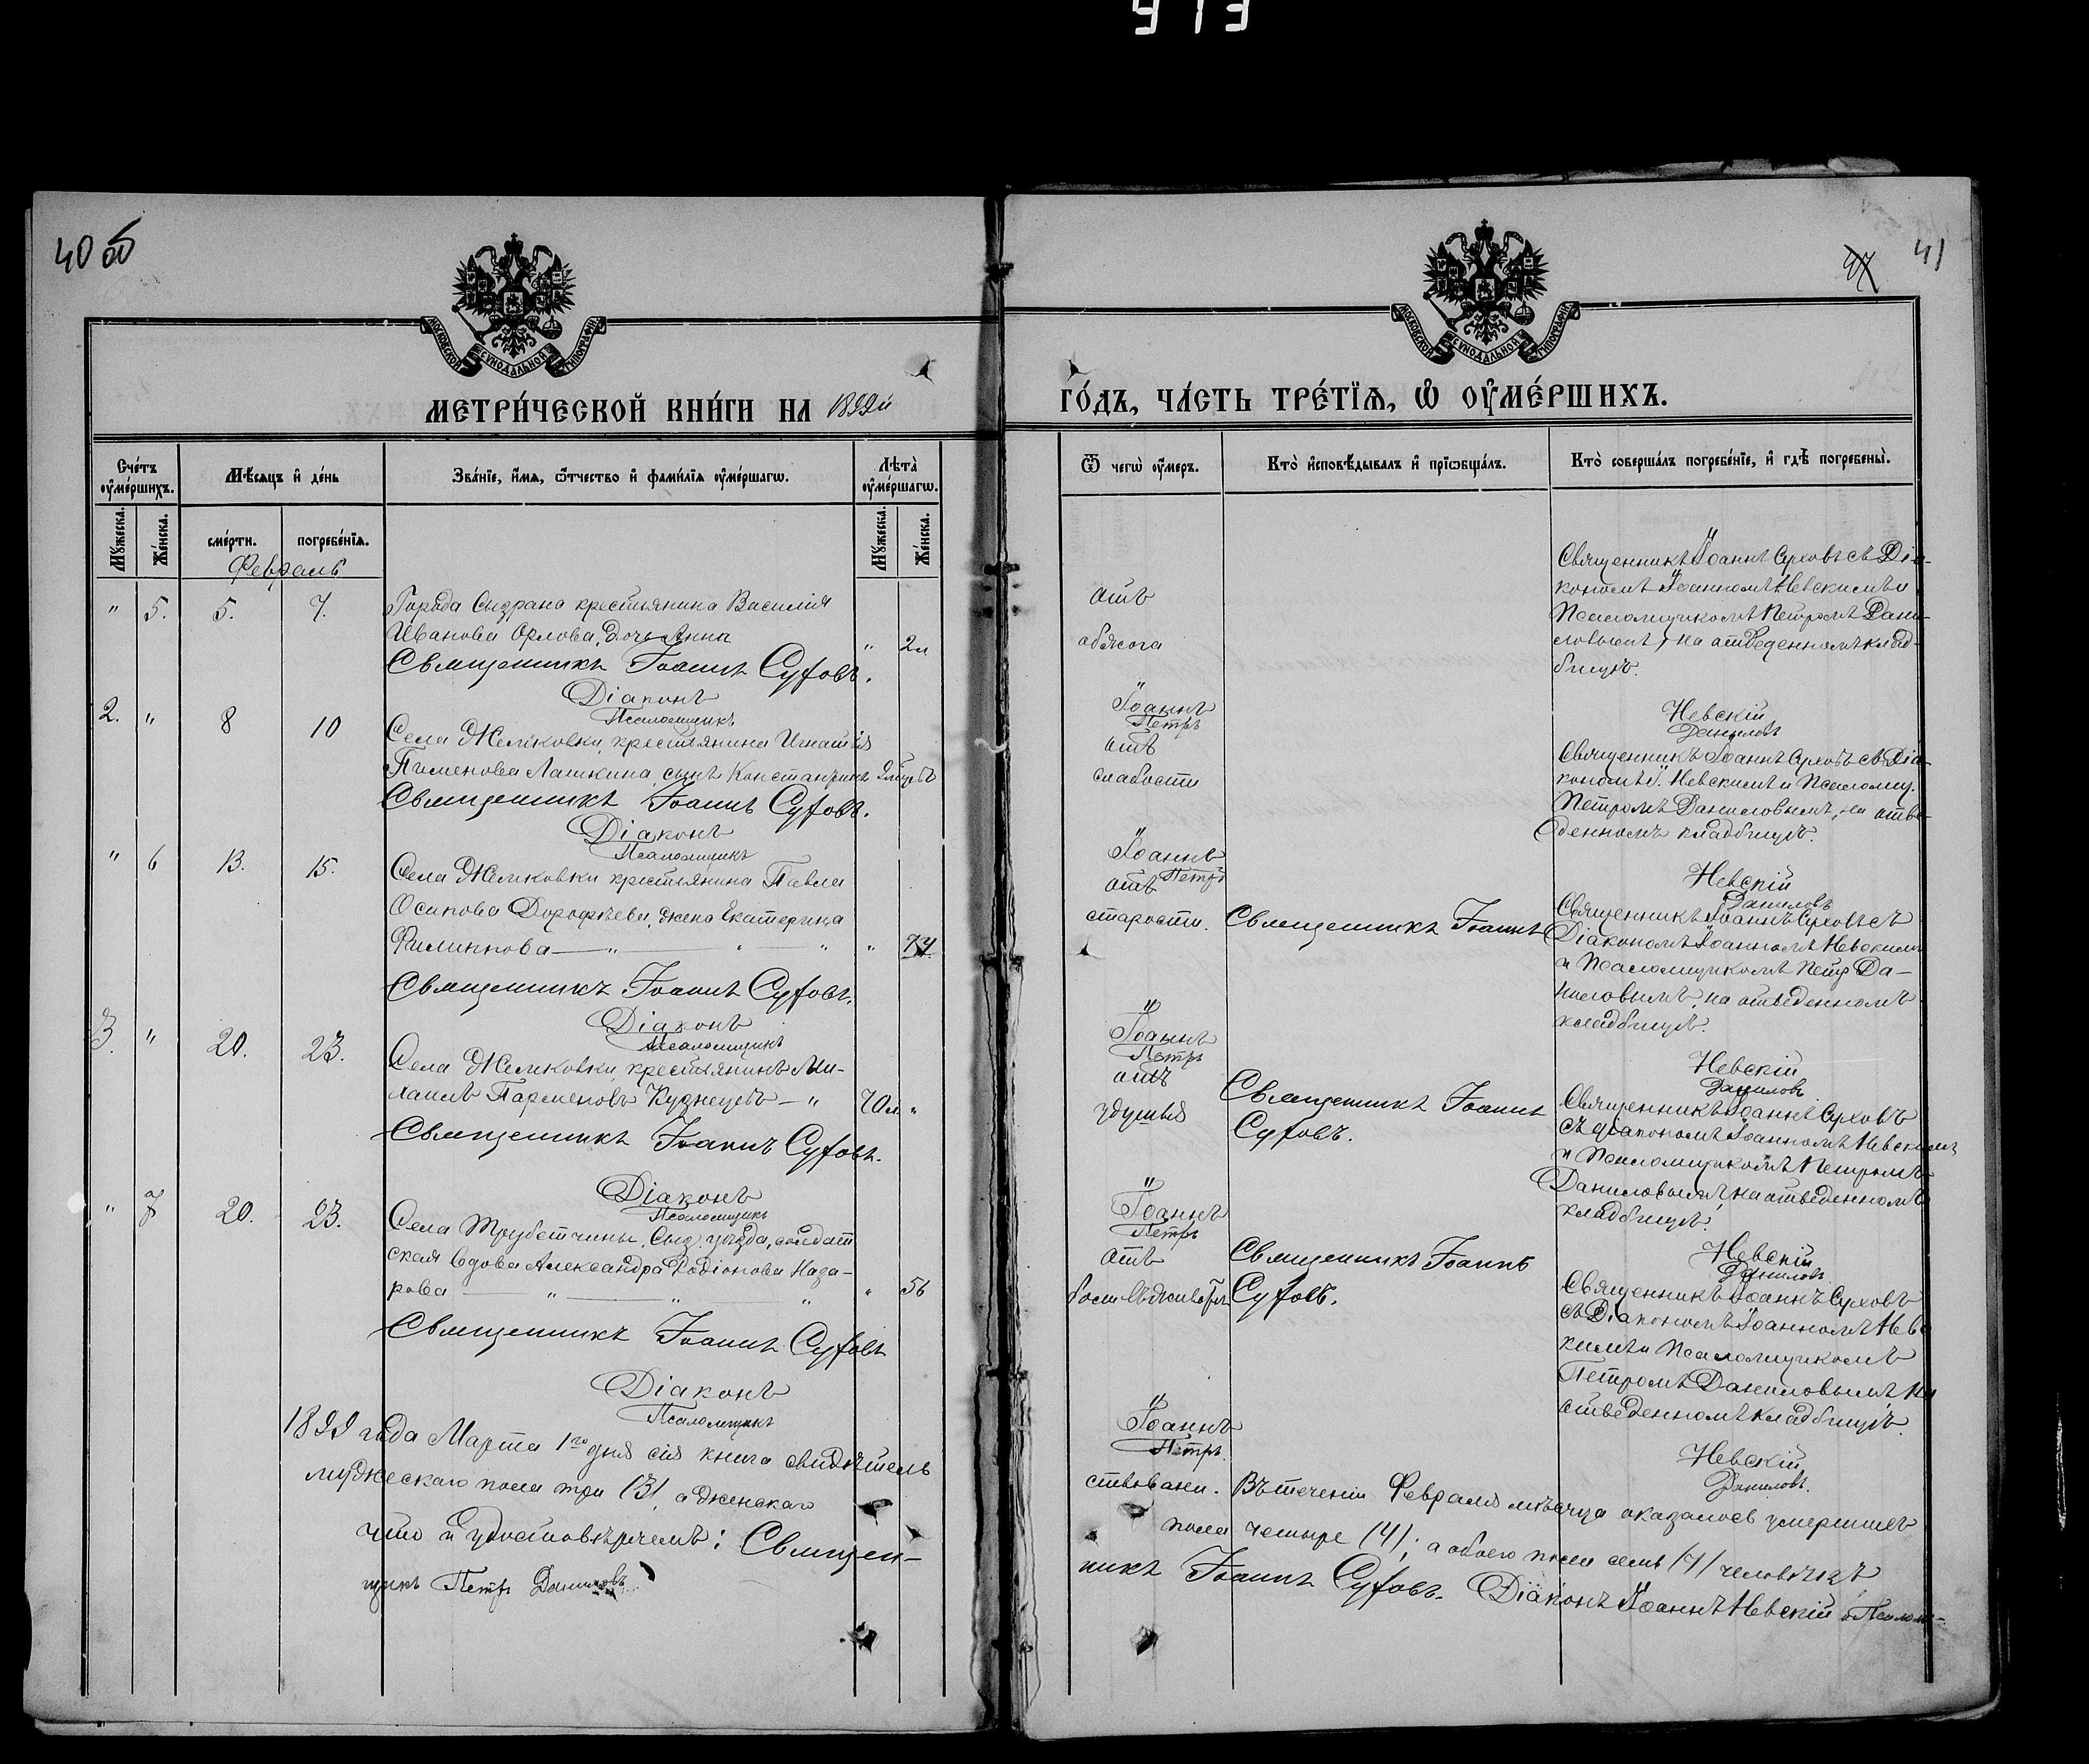 913
40 об
МОСКОВСКОЙ СѴНОДАЛЬНОЙ ТИПОГРАФІИ
МЕТРИ́ЧЕСКОЙ КНИ́ГИ НА 1899й
Сче́тъ ᲂу҆ме́ршихъ.
Мѣ́сяцъ и҆ де́нь
Зва́нїе, и҆́мя, ѻ҆́тчество и҆ фами́лїя ᲂу҆ме́ршагѡ.
Лѣ́та ᲂу҆ме́ршагѡ.
Мꙋ́жеска. Же́нска. сме́рти. погребе́нїя. Мꙋ́жеска. Же́нска.
Февраль
" 5. 5. 7. Города Сызрана крестьянина Василія
Иванова Орлова, дочь Анна " 2 л
Священникъ Іоаннъ Суховъ.
Діаконъ
Псаломщикъ
2. " 8 10 Села Жемковки, крестьянина Игнатія
Пименова Лашкина, сынъ Константинъ
Священникъ Іоаннъ Суховъ.
Діаконъ
Псаломщикъ
" 6 13. 15. Села Жемковки крестьянина Павла
Осипова Дорофѣева, жена Екатерина
Филиппова — " — " — " " 74
Священникъ Іоаннъ Суховъ.
Діаконъ
Псаломщикъ
3. " 20. 23. Села Жемковки, крестьянинъ Ми-
хаилъ Парменовъ Кузнецовъ — " 70 л. "
Священникъ Іоаннъ Суховъ.
Діаконъ
Псаломщикъ
" 7 20. 23. Села Трубетчины, Сыз. уѣзда, солдат
ская вдова Александра Родіонова Наза-
рова — " — " — " " 56
Священникъ Іоаннъ Суховъ
Діаконъ
Псаломщикъ
1899 года Марта 1го дня сія книга свидѣтель
мужескаго пола три (3), а женскаго
что и удостовѣряемъ: Священ-
щикъ Петръ Даниловъ
41
МОСКОВСКОЙ СѴНОДАЛЬНОЙ ТИПОГРАФІИ
ГО́ДЪ, ЧА́СТЬ ТРЕ́ТЇѦ, Ѡ҆ ОУ҆МЕ́РШИХЪ.
Ѿ чегѡ̀ ᲂу҆́меръ.
Кто̀ и҆сповѣ́дывалъ и҆ прїѡбща́лъ.
Кто̀ соверша́лъ погребе́нїе, и҆ гдѣ̀ погребены̀.
отъ
обжога
Священникъ Іоаннъ Суховъ съ Діа-
кономъ Іоанномъ Невскимъ и
Псаломщикомъ Петромъ Дани-
ловымъ, на отведенномъ клад-
бищѣ.
Іоаннъ Невскій
Петръ Даниловъ
отъ
слабости
Священникъ Іоаннъ Суховъ съ Діа-
кономъ І. Невскимъ и Псаломщ.
Петромъ Даниловымъ, на отве-
денномъ кладбищѣ.
Іоаннъ Невскій
Петръ Даниловъ
отъ
старости. Священникъ Іоаннъ
Священникъ Іоаннъ Суховъ съ
Діакономъ Іоанномъ Невскимъ
и Псаломщикомъ Петр Да-
ниловымъ, на отведенномъ
кладбищѣ.
Іоаннъ Невскій
Петръ Даниловъ
отъ
удушья
Священникъ Іоаннъ
Суховъ.
Священникъ Іоаннъ Суховъ
съ діакономъ Іоанномъ Невскимъ
и Псаломщикомъ Петромъ
Даниловымъ, на отведенномъ
кладбищѣ.
Іоаннъ Невскій
Петръ Даниловъ
отъ
боли въ
Священникъ Іоаннъ
Суховъ.
Священникъ Іоаннъ Суховъ
съ Діакономъ Іоанномъ Невс
кимъ и Псаломщикомъ
Петромъ Даниловымъ на
отведенномъ кладбищѣ.
Іоаннъ Невскій
Петръ. Даниловъ.
ствована. Въ теченіи Февраля мѣсяца оказалось умершихъ
пола четыре (4); а обоего пола семь (7) человѣкъ
никъ Іоаннъ Суховъ. Діаконъ Іоаннъ Невскій Псалом-